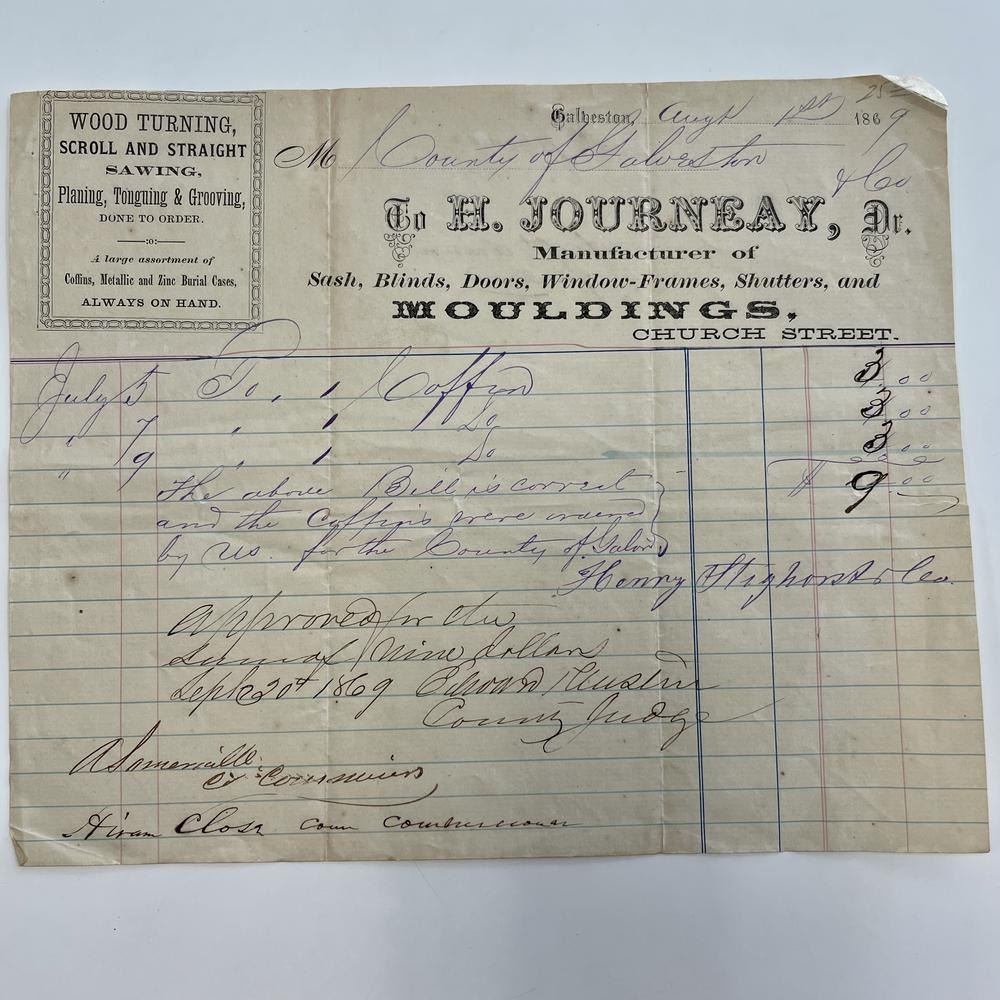 WOOD TURNING,
SCROLL AND STRAIGHT
SAWING,
Planing, Tonguing & Grooving,
DONE TO ORDER.
:o:
A large assortment of
Coffins, Metallic and Zinc Burial Cases,
ALWAYS ON HAND.
25
Galveston, Augt 1st 1869
M County of Galveston
& Co
To H. JOURNEAY, Dr.
Manufacturer of
Sash, Blinds, Doors, Window-Frames, Shutters, and
MOULDINGS,
CHURCH STREET.
July 5 To, 1 Coffin 3.00
" 7 " 1 Do 3.00
" 9 " 1 Do 3.00
The above Bill is correct $ 9.00
and the Coffins were ordered
by us. for the County of Galves
Henry & Co.
approved for the
sum of Nine dollars
Sept 20t 1869 Edward
County Judge
A Somerville
Co Commiss
Hiram Close Coun Commissioner